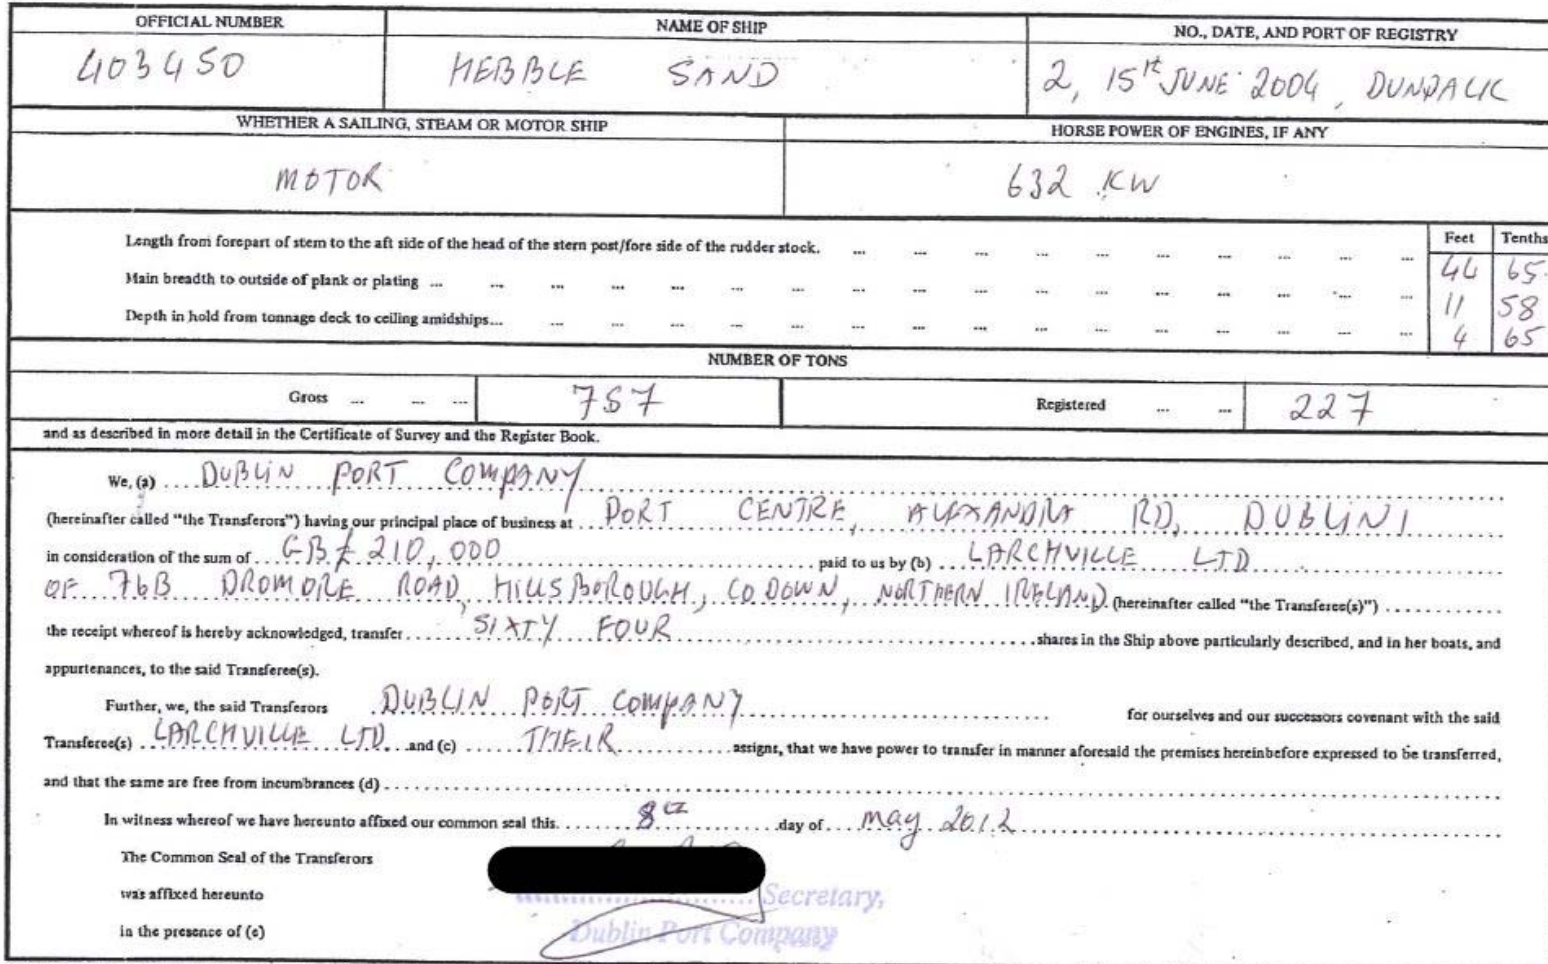 OFFICIAL NUMBER NAME OF SHIP NO., DATE, AND PORT OF REGISTRY
403450 HEBBLE SAND 2, 15th JUNE 2004, DUNDALK
WHETHER A SAILING, STEAM OR MOTOR SHIP HORSE POWER OF ENGINES, IF ANY
MOTOR 632 KW
Feet Tenths
Length from forepart of stem to the aft side of the head of the stern post/fore side of the rudder stock. ... ... ... ... ... ... ... ... ... ... 44 65
Main breadth to outside of plank or plating ... ... ... ... ... ... ... ... ... ... ... ... ... ... ... ... ... 11 58
Depth in hold from tonnage deck to ceiling amidships... ... ... ... ... ... ... ... ... ... ... ... ... ... ... ... 4 65
NUMBER OF TONS
Gross ... ... ... 757 Registered ... ... 227
and as described in more detail in the Certificate of Survey and the Register Book.
We, (a) DUBLIN PORT COMPANY
(hereinafter called "the Transferors") having our principal place of business at PORT CENTRE, ALEXANDRA RD, DUBLIN 1
in consideration of the sum of GB£ 210,000 paid to us by (b) LARCHVILLE LTD
OF 76B DROMORE ROAD, HILLSBOROUGH, CO DOWN, NORTHERN IRELAND (hereinafter called "the Transferee(s)")
the receipt whereof is hereby acknowledged, transfer SIXTY FOUR shares in the Ship above particularly described, and in her boats, and
appurtenances, to the said Transferee(s).
Further, we, the said Transferors DUBLIN PORT COMPANY for ourselves and our successors covenant with the said
Transferee(s) LARCHVILLE LTD and (c) THEIR assigns, that we have power to transfer in manner aforesaid the premises hereinbefore expressed to be transferred,
and that the same are free from incumbrances (d)
In witness whereof we have hereunto affixed our common seal this 8th day of May 2012
The Common Seal of the Transferors
was affixed hereunto Secretary,
in the presence of (e) Dublin Port Company